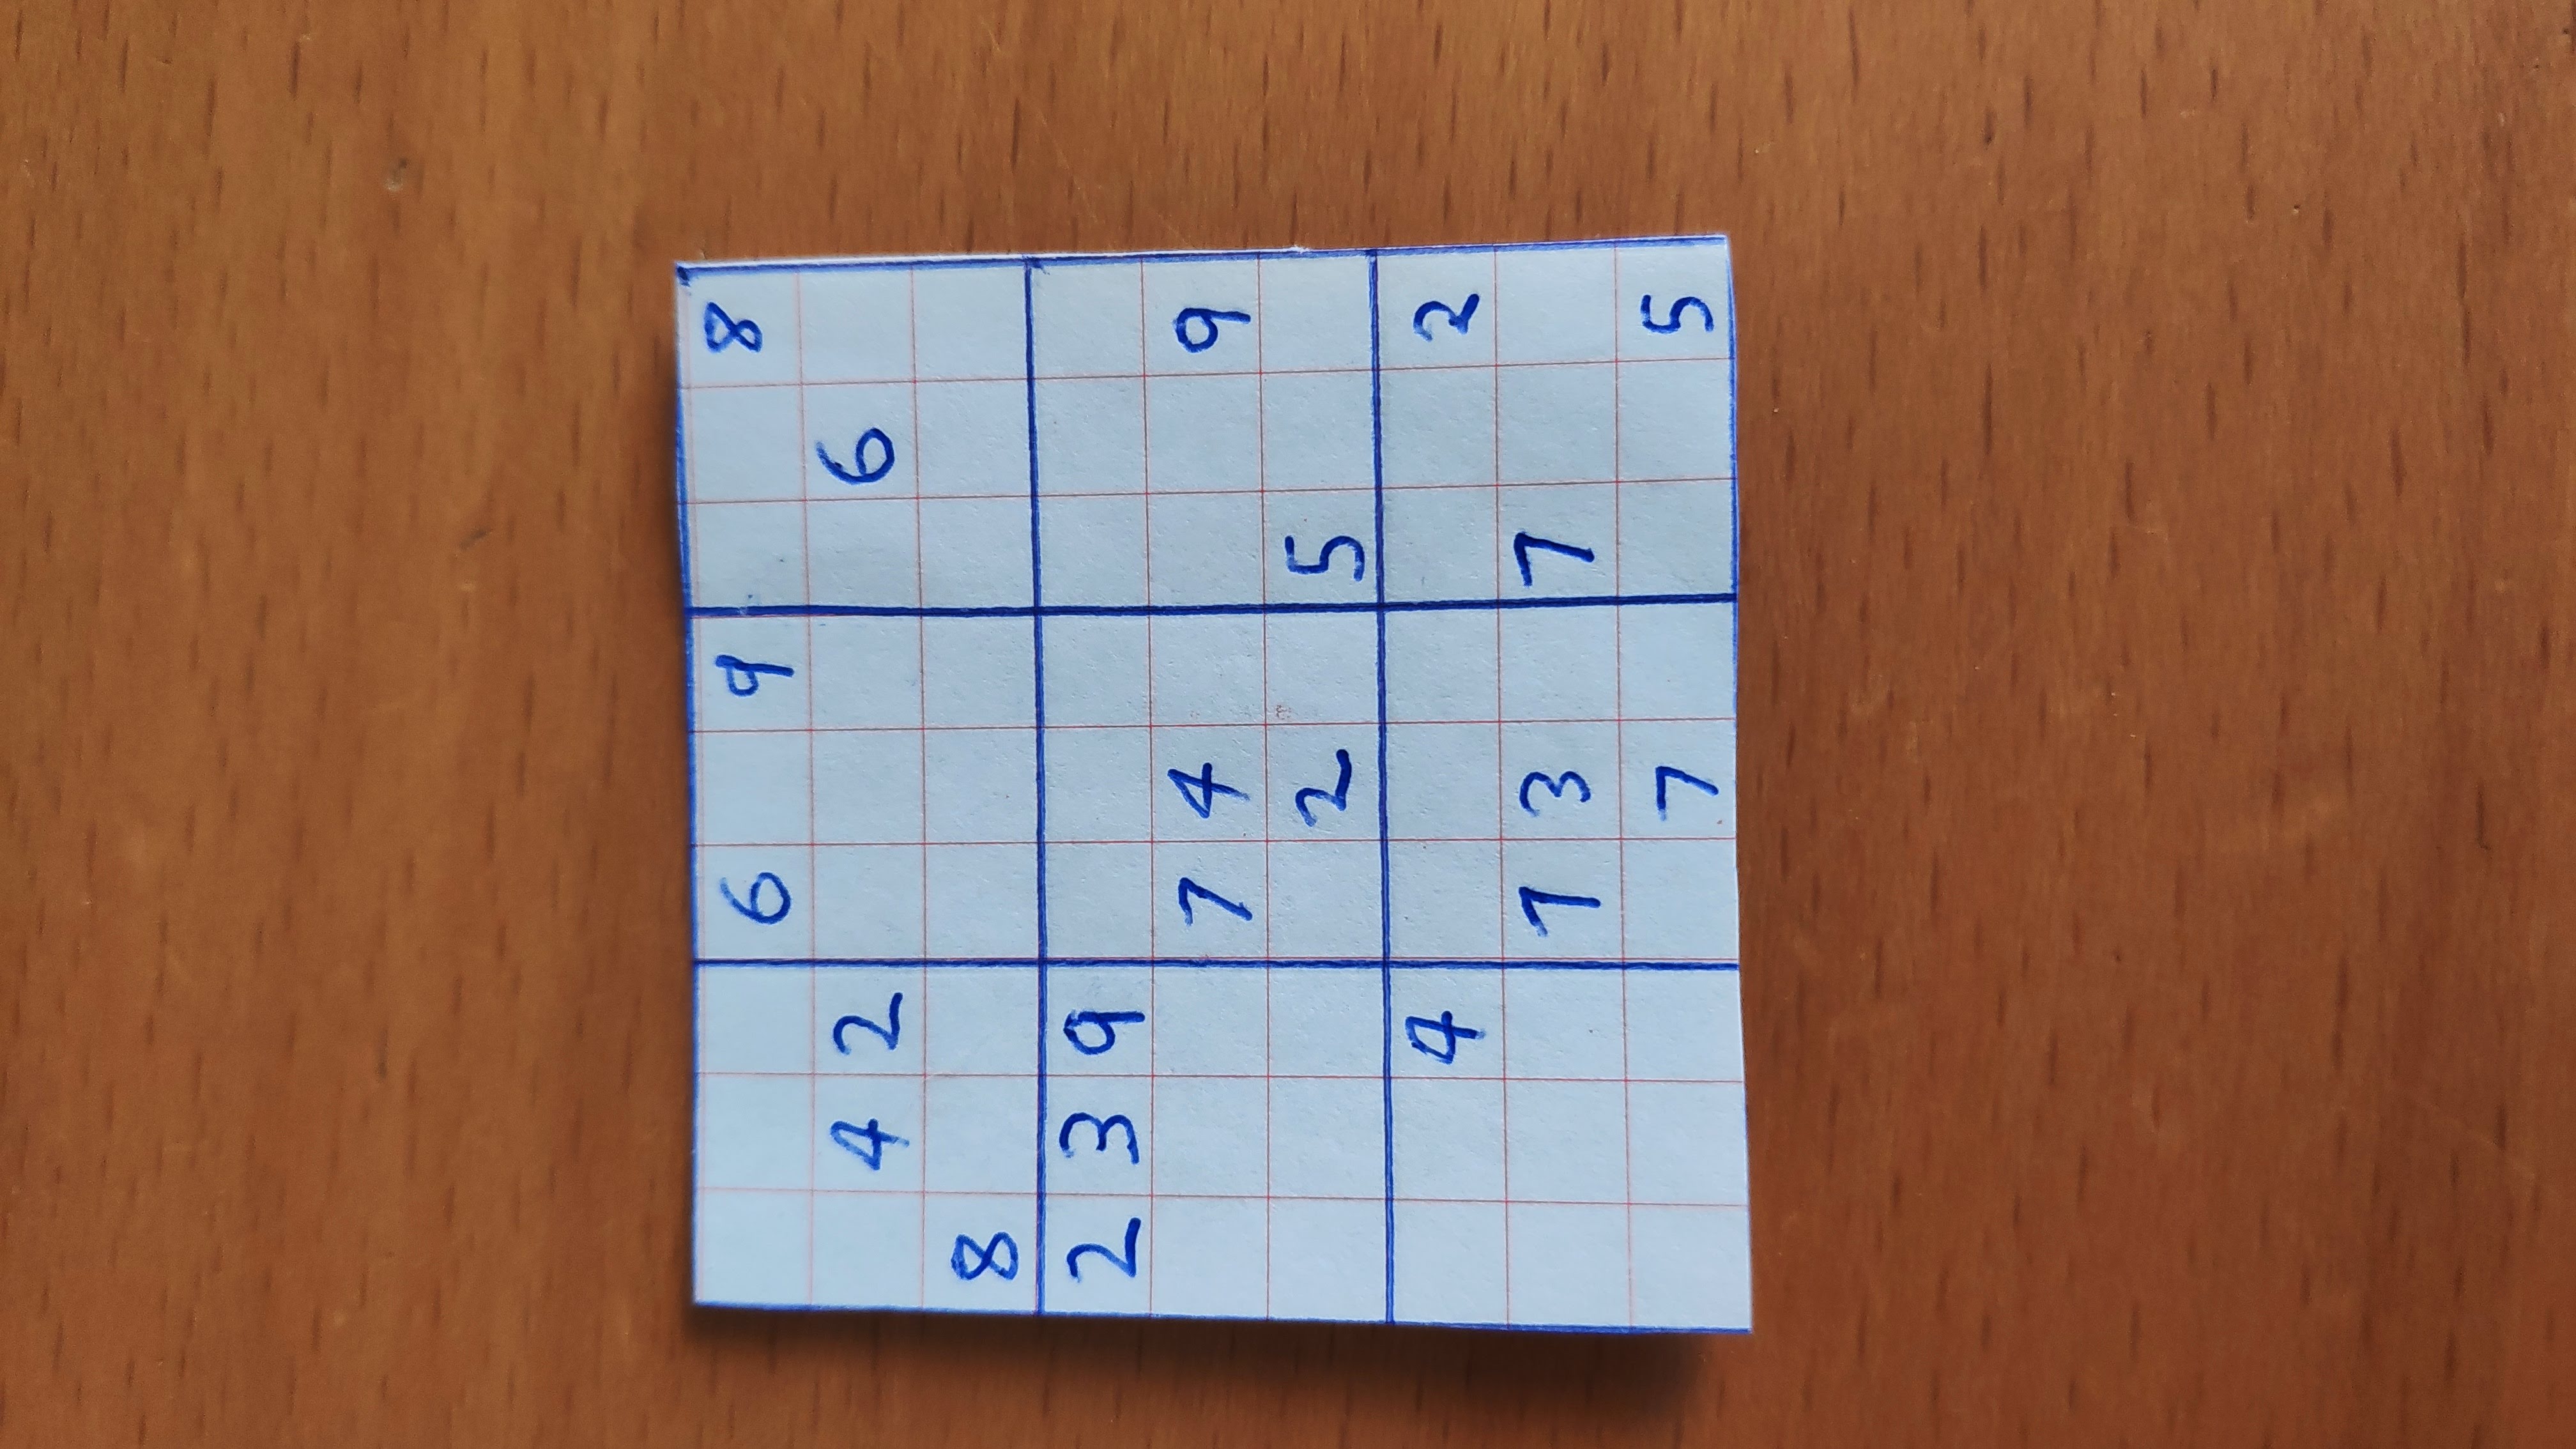 6 9 8
4 2 6
8
2 3 9
7 4 9
2 5
4 2
1 3 7
7 5